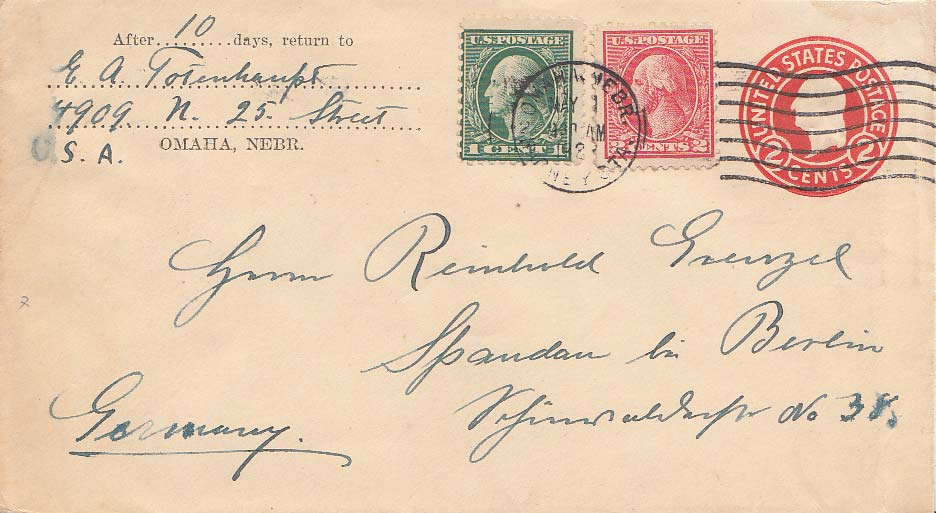 After 10 days, return to
E. A. Totenhaupt
4909 N. 25. Street
OMAHA, NEBR.
U. S. A.
U.S. POSTAGE
1 CENT 1
U.S. POSTAGE
2 CENTS 2
UNITED STATES POSTAGE
2 CENTS 2
OMAHA, NEBR.
AM
STA.
Herrn Reinhold Grenzel
Spandau bei Berlin
Schönwalderstr No 38.
Germany.